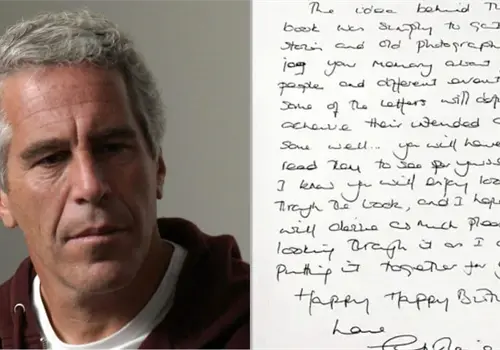 The idea behind The
book was simply to ga
stories and old photograph
jog your memory about
people and different event
some of the letters will def
achieve their intended
some well... you will have
read them to see for yourse
I know you will enjoy loo
through the book, and I hope
will derive as much pleas
looking through it as I
putting it together for
Happy Happy Birt
Love